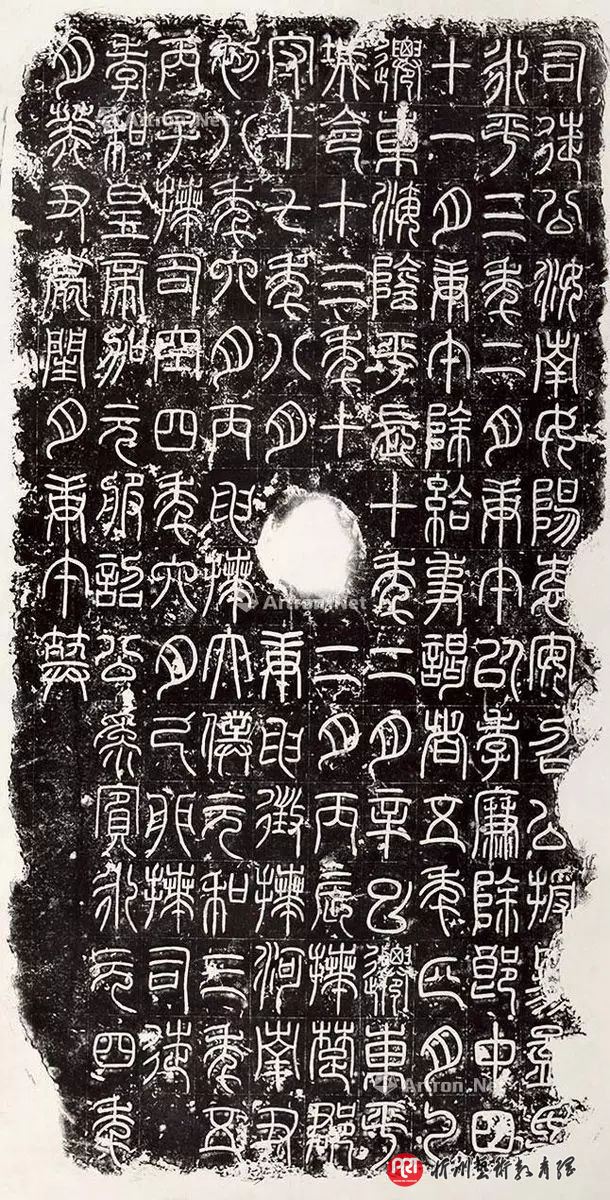 司徒公汝南女陽袁安召公授易孟氏
永平三年二月庚午以孝廉除郎中四
十一月庚午除給事謁者五年正月乙
遷東海陰平長十年二月辛巳遷東平
城令十三年十二月丙辰拜楚郡
守十七年八月庚申徵拜河南尹
初八年六月丙申拜太僕元和三年五
丙子拜司空四年六月己卯拜司徒
孝和皇帝加元服詔公為賓永元四年
月癸丑薨閏月庚午葬
Artron.Net
Artron.Net
Artron.Net
ART